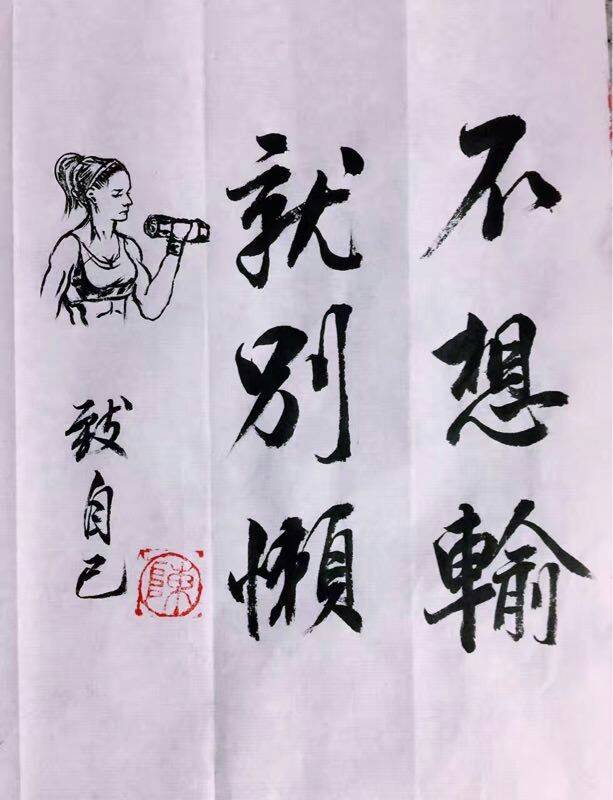 不想輸
就別懶
致自己
陳